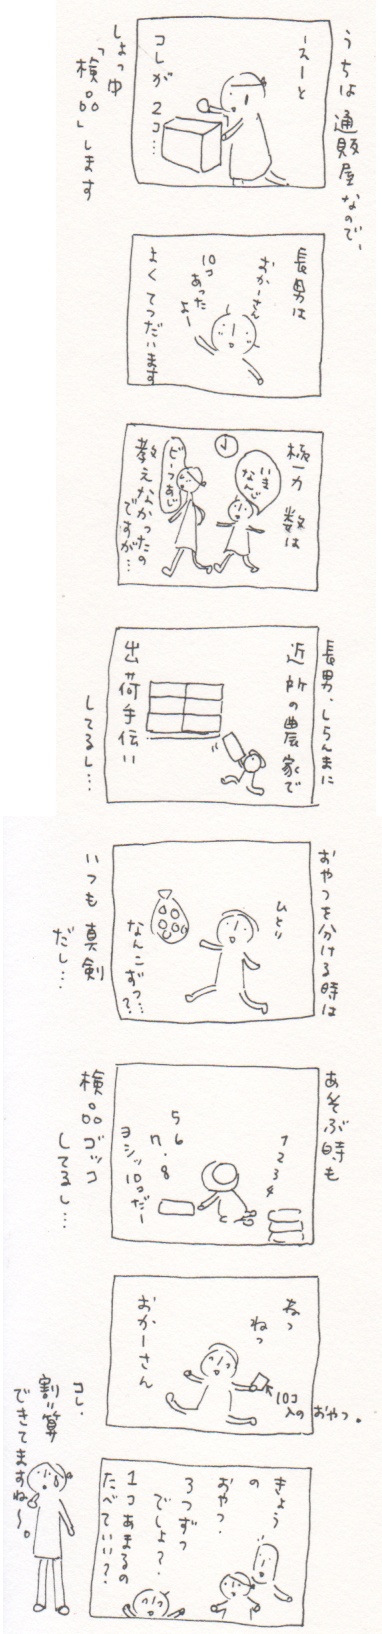 うちは通販屋なので、
しょっ中
「検品」します
えーと
コレが2コ…
長男は
おかーさん
10コ
あった
よー
よくてつだいます
極力 数は
いま
なんじ
ビーフあじ
教えなかったの
ですが…
長男、しらんまに
近所の農家で
出荷手伝い
してるし…
おやつを分ける時は
ひとり
なんこずつ…?
いつも真剣
だし…
あそぶ時も
1
2
3
4
5
6
7.8
ヨシッ10コだー
検品ゴッコ
してるし…
ねっ
ねっ
おかーさん
10コ
入の おやつ。
きょう
の
おやつ.
3つずつ
でしょ?.
1コあまるの
たべていい?
コレ.
割り算
できてますね〜。